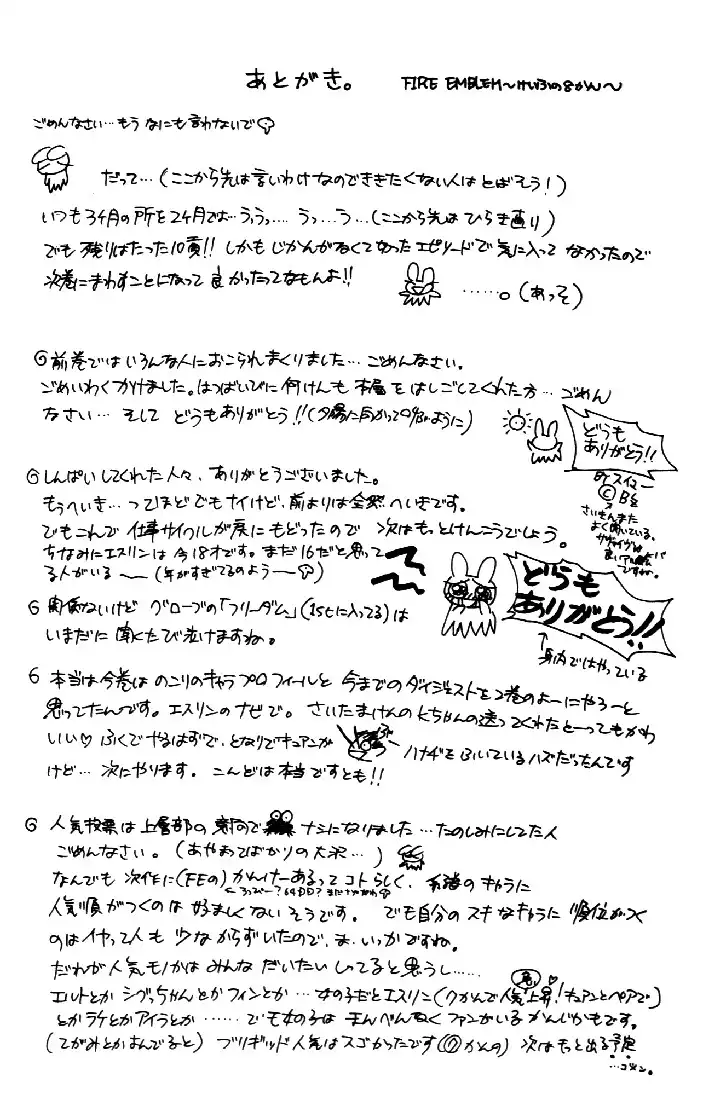 あとがき。 FIRE EMBLEM〜けいふの8かん〜
ごめんなさい…もう なにも言わないで
だって…(ここから先は言いわけなのでききたくない人はとばそう!)
いつも3ヶ月の所を2ヶ月では…うぅっ…… うっ…う…(ここから先は ひらき直り)
でも 残りはたった10頁!! しかもじかんがなくて なったエピソードで 気に入って なかったので
次巻にまわすことになって 良かったってなもんよ!!
……。(あっそ)
前巻では いろんな人に おこられまくりました…ごめんなさい。
ごめいわくかけました。はつばいびに何けんも 本屋をはしごしてくれた方… ごめん
なさい… そして どうもありがとう!!(夕陽に向かって叫ぶように)
どうも
ありがとう!!
しんぱいしてくれた人々、ありがとうございました。
もうへいき… ってほどでもナイけど、前よりは全然へいきです。
でもこれで 仕事サイクルが元にもどったので 次はもっとけんこうでしょう。
ちなみにエスリンは 今18才です。まだ16だと思って
る人がいる〜 (年がすぎてるのよう〜)
どうも
ありがとう!!
↑身内ではやっている
関係ないけど グローブの「フリーダム」(1stに入ってる)は
いまだに 聞くたび泣けますね。
本当は今巻は のこりのキャラプロフィールと 今までのダイジェストを2巻のよーにやろーと
思ってたんです。エスリンのナビで。さいたまけんのKちゃんの送ってくれたとーってもかわ
いい♡ふくでやるはずで、となりでキュアンが ハナヂをふいているハズだったんです
けど… 次にやります。こんどは本当ですとも!!
人気投票は上層部の 方で ナシになりました…たのしみにしてた人
ごめんなさい。(あやまってばかりの大沢…)
なんでも 次作に(FEの)かんけーあるってコトらしく、 のキャラに
人気順がつくのは 好ましくないそうです。 でも自分のスキなキャラに順位がつく
のはイヤって人も 少なからずいたので、ま、いっかですね。
だれが人気モノかは みんな だいたい しってると思うし……
エルトとか シグっちゃんとかフィンとか…女の子だとエスリン(7かんで人気急上昇!キュアンとペアで)
とかラケとかアイラとか …… でも女の子は まんべんなく ファンがいる かんじかもです。
(てがみとかよんでると) ブリギッド人気はスゴかったです(7かんの) 次はもっと出る予定
…コツン。